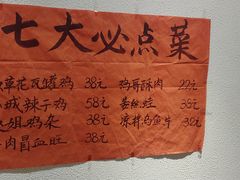 七大必点菜
草花瓦罐鸡 38元 鸡哥酥肉 22元
城辣子鸡 58元 蛙 38元
姐鸡杂 38元 凉拌乌鱼片 32元
肉冒血旺 38元